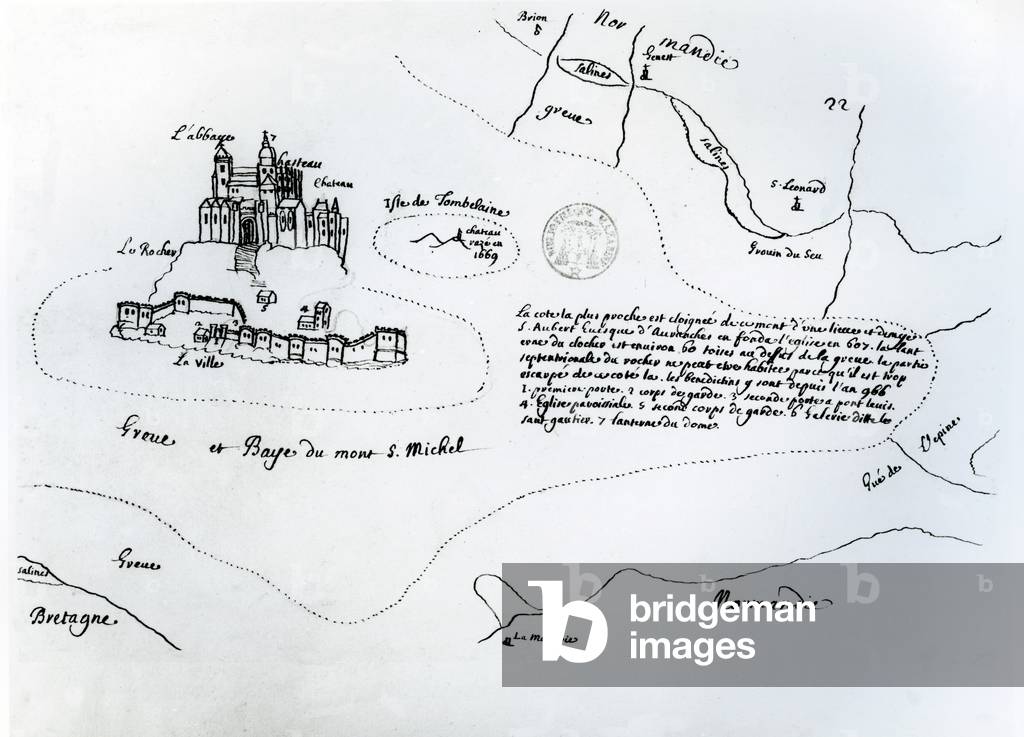 Brion
Nor
mandie
Genest
salines
greue
salines
22
S. Leonard
Grouin du Seu
L'abbaye
7
Chasteau
Chateau
Isle de Tombelaine
chateau
razé en
1669
Le Rocher
5
4
2
3
La Ville
La cote la plus proche est eloignée de ce mont d'une lieue et demye
S. Aubert Euesque d'Avranches en fonda l'eglise en 607. la lant
erne du clocher est enuiron 60 toises au dessus de la greue la partie
septentrionale du rocher ne peut etre habitée parce qu'il est trop
escarpé de ce coté la. les benedictins y sont depuis l'an 966
1. premiere porte. 2 corps de garde. 3 seconde porte a pont leuis.
4. Eglise paroissiale. 5 second corps de garde. 6 Galerie ditte le
saut gautier. 7 lanterne du dome.
Greue
et Baye du mont S. Michel
Gué de
l'epine
Greue
salines
Bretagne
Normandie
La
bridgeman
images